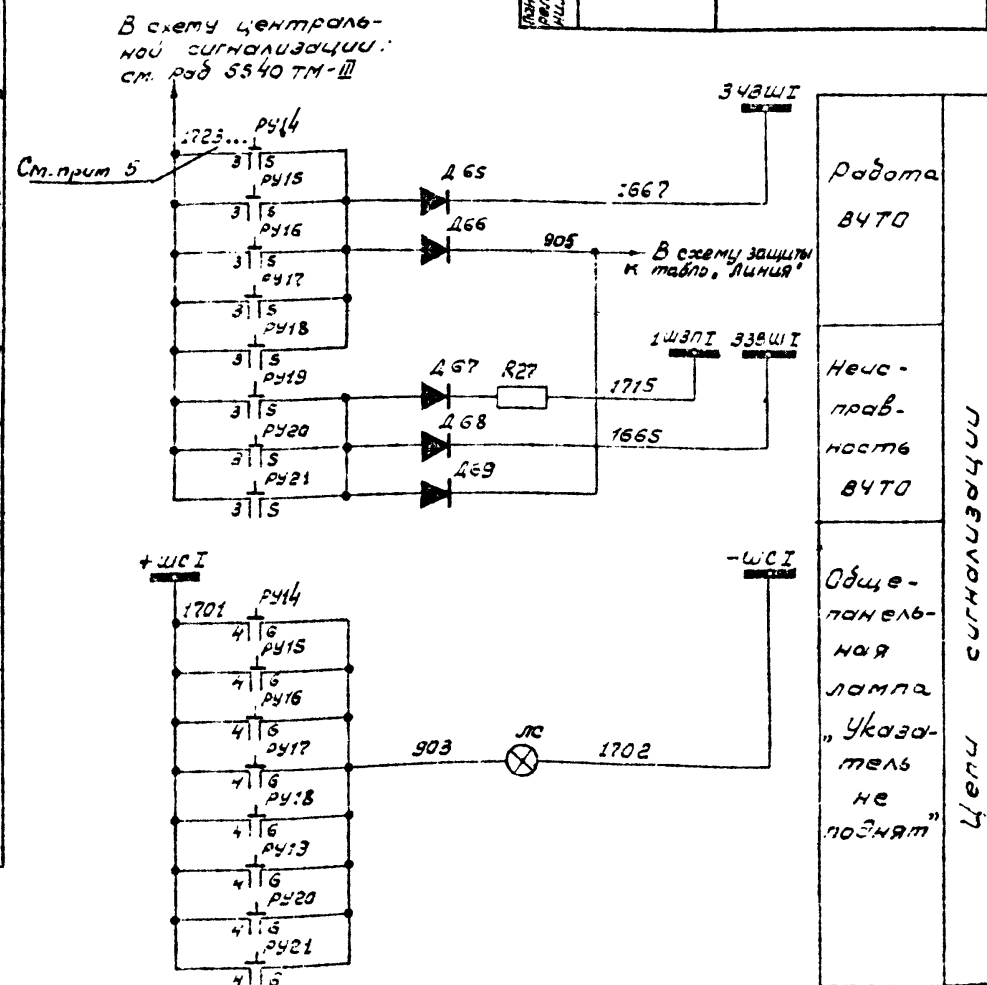 В схему централь-
ной сигнализации.
см. раб 5540 ТМ-III
См. прим 5
1723...
РУ14
3 5
РУ15
3 5
РУ16
3 5
РУ17
3 5
РУ18
3 5
РУ19
3 5
РУ20
3 5
РУ21
3 5
Д65
1667
3ЧВШI
Д66
905
В схему защиты
к табло "Линия"
Д67
R27
1715
1ШЗПI
33ВШI
Д68
1665
Д69
+ШСI
1701
РУ14
4 6
РУ15
4 6
РУ16
4 6
РУ17
4 6
РУ18
4 6
РУ13
4 6
РУ20
4 6
РУ21
4 6
903
ЛС
1702
-ШСI
Работа
ВЧТО
Неис-
прав-
ность
ВЧТО
Обще-
панель-
ная
лампа
„Указа-
тель
не
поднят"
Цепи сигнализации